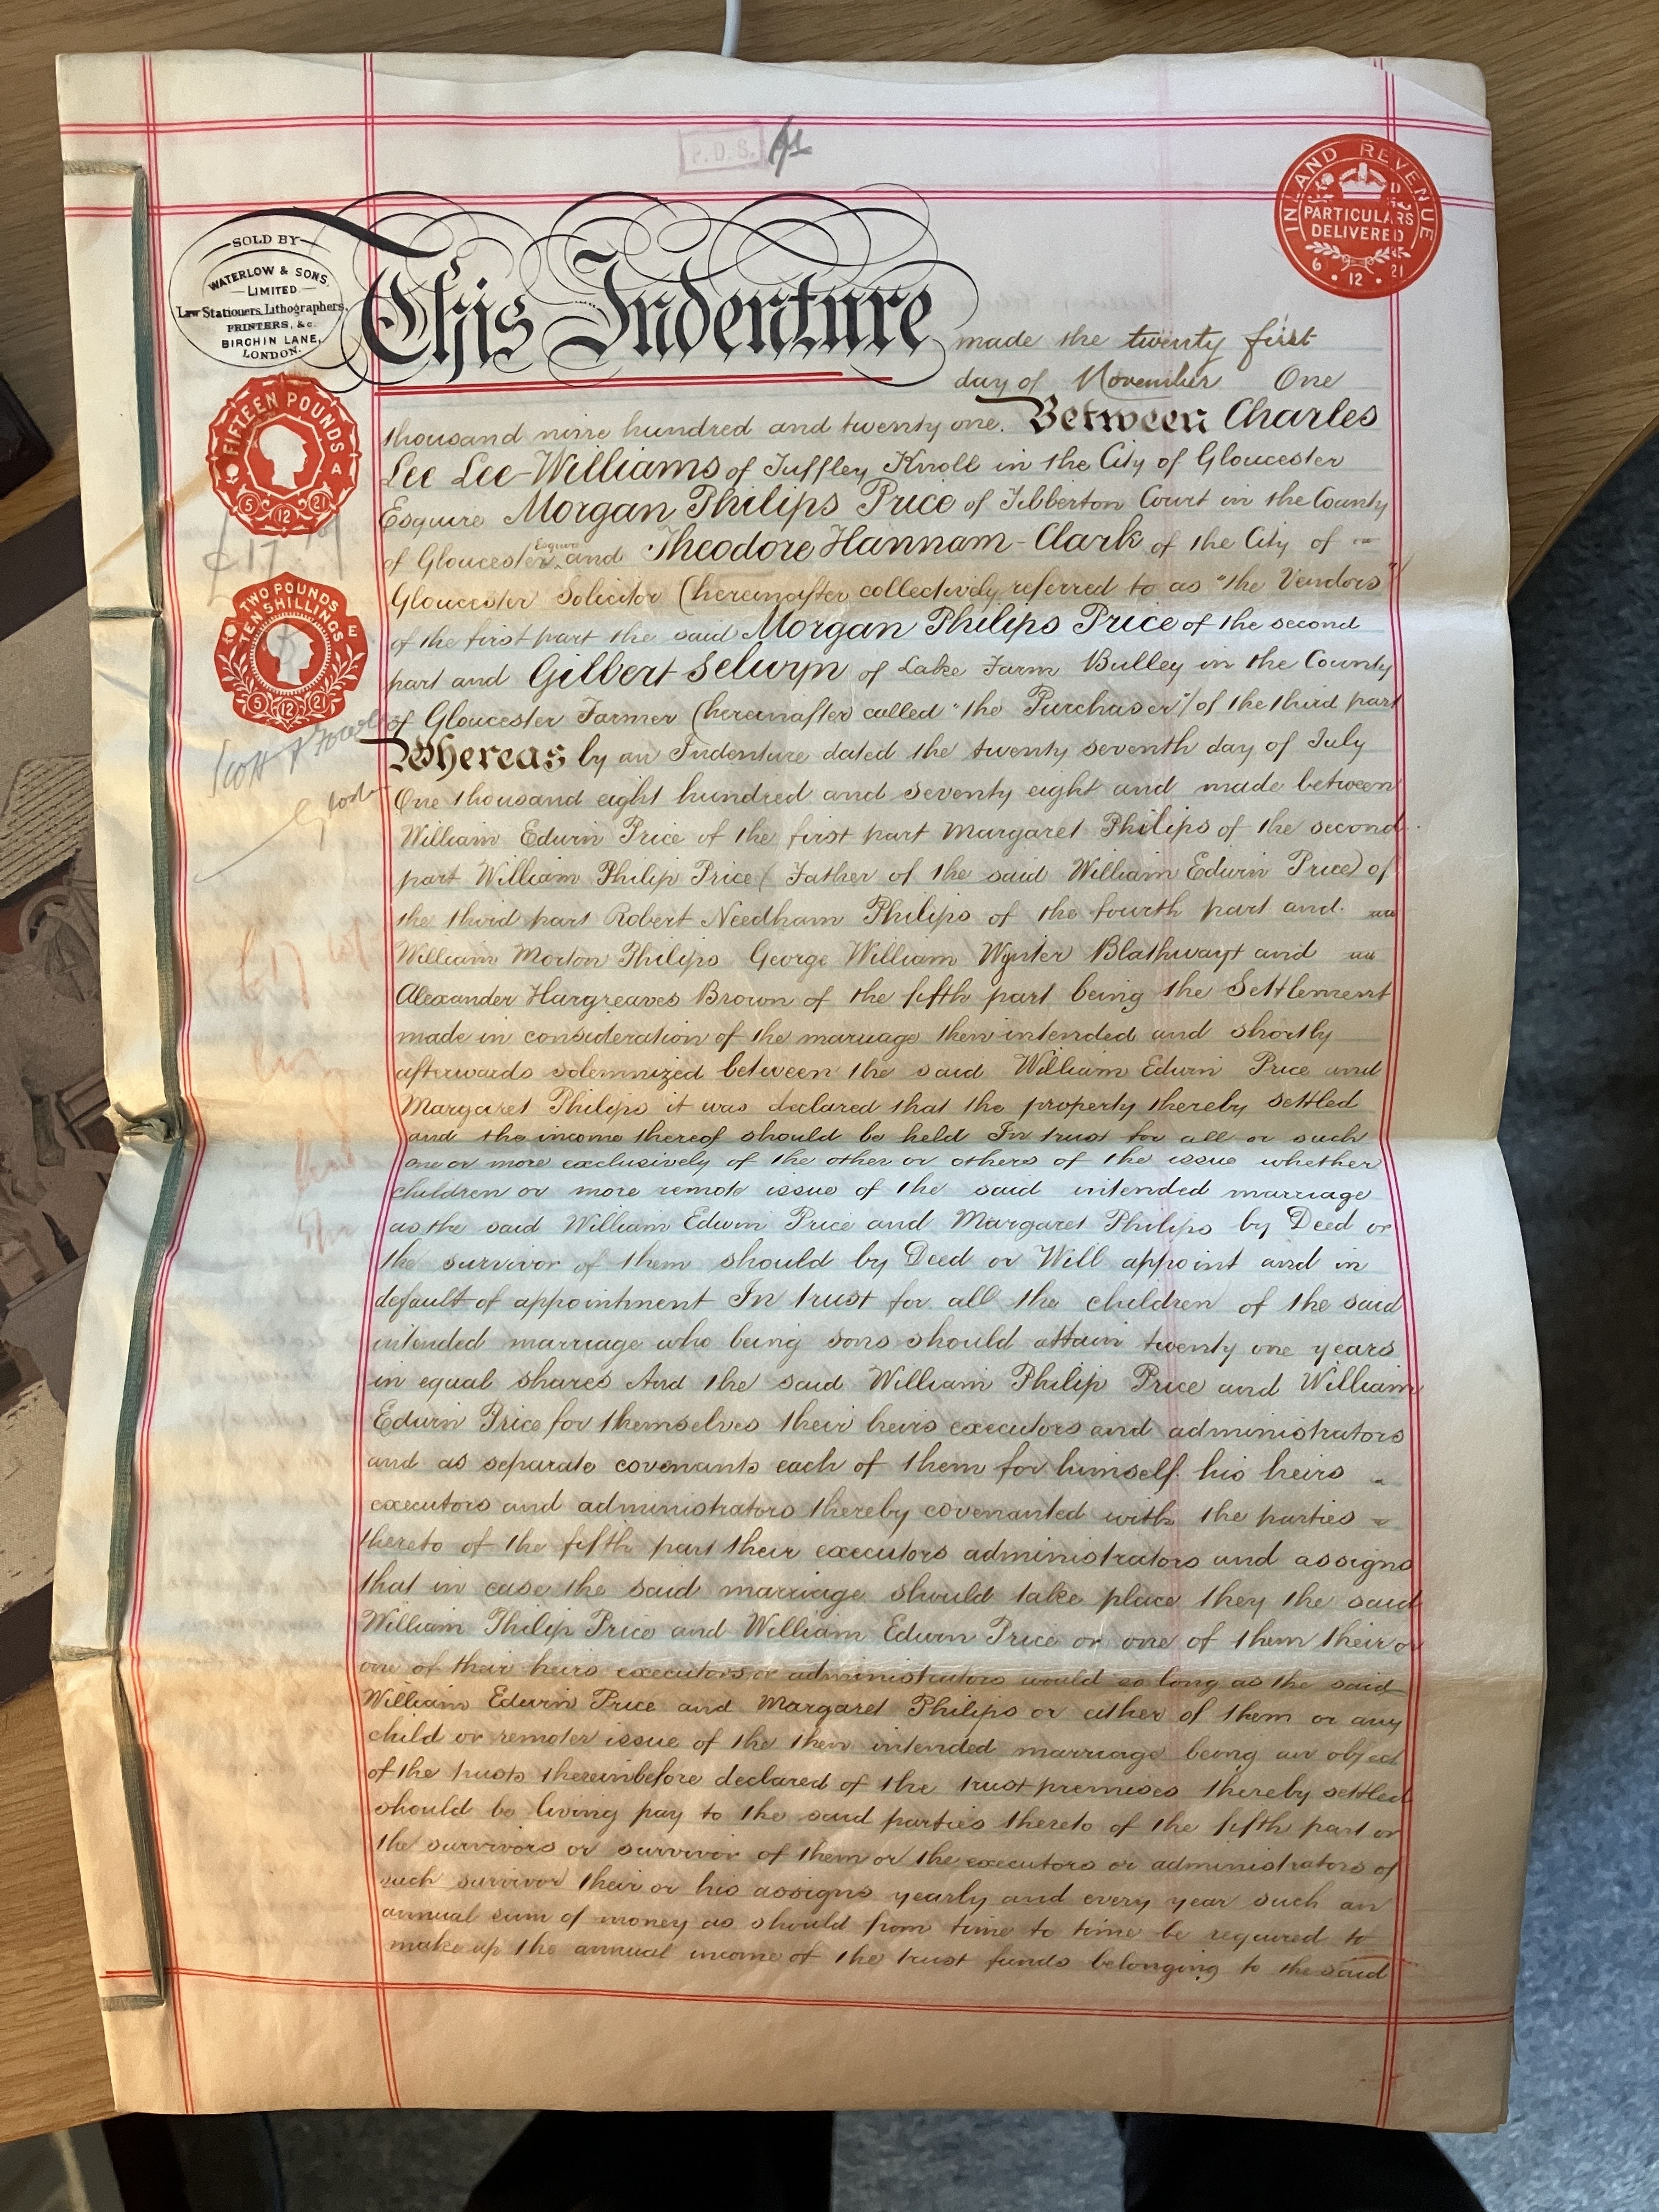 P.D.S.
INLAND REVENUE
PARTICULARS
DELIVERED
6 · 12 21
SOLD BY
WATERLOW & SONS
LIMITED
Law Stationers, Lithographers,
PRINTERS, &c.
BIRCHIN LANE,
LONDON.
This Indenture made the twenty first
day of November One
FIFTEEN POUNDS
A
5 12 21
thousand nine hundred and twenty one. Between Charles
Lee Lee-Williams of Tuffley Knoll in the City of Gloucester
Esquire Morgan Philips Price of Tibberton Court in the County
of Gloucester Esquire and Theodore Hannam-Clark of the City of
Gloucester Solicitor (hereinafter collectively referred to as "the Vendors"
£17.
TWO POUNDS
TEN SHILLINGS
E
5 12 21
of the first part the said Morgan Philips Price of the second
part and Gilbert Selwyn of Lake Farm Bulley in the County
of Gloucester Farmer (hereinafter called "the Purchaser") of the third part
Scott &
Whereas by an Indenture dated the twenty seventh day of July
One thousand eight hundred and seventy eight and made between
William Edwin Price of the first part Margaret Philips of the second
part William Philip Price (Father of the said William Edwin Price) of
the third part Robert Needham Philips of the fourth part and
William Morton Philips George William Wynter Blathwayt and
Alexander Hargreaves Brown of the fifth part being the Settlement
made in consideration of the marriage then intended and shortly
afterwards solemnized between the said William Edwin Price and
Margaret Philips it was declared that the property thereby settled
and the income thereof should be held In trust for all or such
one or more exclusively of the other or others of the issue whether
children or more remote issue of the said intended marriage
as the said William Edwin Price and Margaret Philips by Deed or
the survivor of them should by Deed or Will appoint and in
default of appointment In trust for all the children of the said
intended marriage who being sons should attain twenty one years
in equal shares And the said William Philip Price and William
Edwin Price for themselves their heirs executors and administrators
and as separate covenants each of them for himself his heirs
executors and administrators thereby covenanted with the parties
thereto of the fifth part their executors administrators and assigns
that in case the said marriage should take place they the said
William Philip Price and William Edwin Price or one of them their or
one of their heirs executors or administrators would so long as the said
William Edwin Price and Margaret Philips or either of them or any
child or remoter issue of the then intended marriage being an object
of the trusts thereinbefore declared of the trust premises thereby settled
should be living pay to the said parties thereto of the fifth part or
the survivors or survivor of them or the executors or administrators of
such survivor their or his assigns yearly and every year such an
annual sum of money as should from time to time be required to
make up the annual income of the trust funds belonging to the said